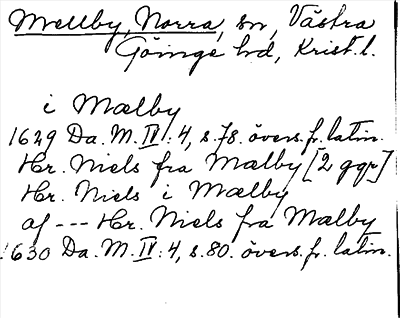 Mellby, Norra, sn, Västra
Göinge hd, Krist. l.
i Mælby
1629 Da. M. IV: 4, s. 78. övers. fr. latin.
Hr. Niels fra Mælby [2 ggr]
Hr. Niels i Mælby
af --- Hr. Niels fra Mælby
1630 Da. M. IV: 4, s. 80. övers. fr. latin.